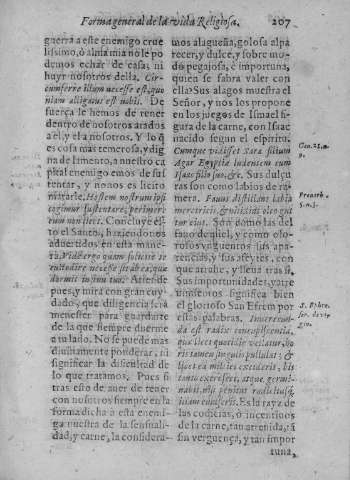 Forma general de la vida Religiosa. 207
guerra a este enemigo crue
lissimo, ò alma mia no le po
demos echar de casa, ni
huyr nosotros della. Cir-
cumferre illum necesse est, quo
niam alligatus est nobis. De
fuerça le hemos de tener
dentro de nosotros atados
a el, y el a nosotros. Y lo q̃
es cosa mas temerosa, y dig
na de lamento, a nuestro ca
pital enemigo emos de sus
tentar, y no nos es licito
matarle. Hostem nostrum ipsi
cogimur sustentare, perimere
eum non licet. Concluye es-
to el Santo, haziendonos
aduertidos en esta mane
ra. Vide ergo quam solicite te
custodire necesse sit ab ex, qui
dormit in sinu tuo. Atiende
pues, y mira con gran cuy
dado, que diligencia serà
menester para guardarte
de la que siempre duerme
a tu lado. No se puede mas
diuinamente ponderar, ni
significar la dificultad de
lo que tratamos. Pues si
tras esto de auer de tener
con nosotros siempre en la
forma dicha a esta enemi-
ga nuestra de la sensuali-
dad, y carne, la considera-
mos alagueña, golosa al pa
recer, y dulce, y sobre mo-
do pegajosa, è importuna,
quien se sabra valer con
ella? Sus alagos muestra el
Señor, y nos los propone
en los juegos de Ismael fi-
gura de la carne, con Isaac
nacido segun el espiritu.
Cumque vidisset Sara filium
Agar Egyptiæ ludentem cum
Isaac filio suo, &c. Sus dulçu
ras son como labios de ra-
mera. Fauus distillans labia
meretricis, & nitidius oleo gut
tur eius. Son como las del
fauo de miel, y como olo-
rosos vnguentos sus apa-
riencias, y sus afeytes, con
que arrastra, y lleua tras si.
Sus importunidades, y atre
uimientos significa bien
el glorioso San Efrem por
estas palabras. Inuerecun-
da est radix concupiscentia,
quæ licet quotidie vellatur, ho
ris tamen singulis pullulat; &
licet ea millies excideris, bis
tanto excrescet, atque germi-
nabit, nisi penitus radicitusq̃
illam euulseris. Es la rayz de
las codicias, ò incentiuos
de la carne, tan atreuida, tã
sin verguença, y tan impor
tuna,
Gen. 21. n.
9.
Prouerb.
5. n. 3.
S. Ephre.